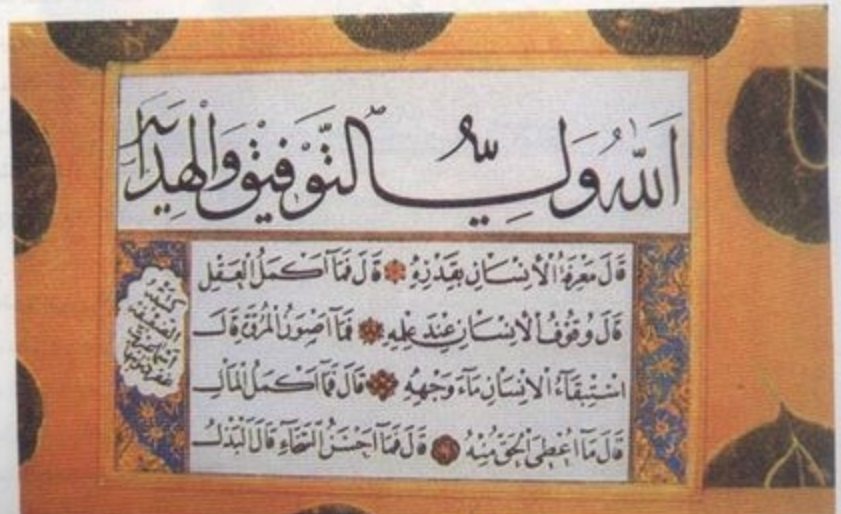 اَللّٰهُ وَلِيُّ التَّوْفِيْقِ وَالْهِدَايَة
قَالَ مَعْرِفَةُ الْاِنْسَانِ بِقَدْرِهِ قَالَ فَمَا اَكْمَلُ الْعَقْلِ
قَالَ وُقُوْفُ الْاِنْسَانِ عِنْدَ عِلْمِهِ فَمَا اَصْوَنُ الْمُرُوَّةِ قَالَ
اِسْتِبْقَاءُ الْاِنْسَانِ مَاءَ وَجْهِهِ قَالَ فَمَا اَكْمَلُ الْمَالِ
قَالَ مَا اُعْطِيَ الْحَقُّ مِنْهُ قَالَ فَمَا اَحْسَنُ السَّخَاءِ قَالَ الْبَذْلُ